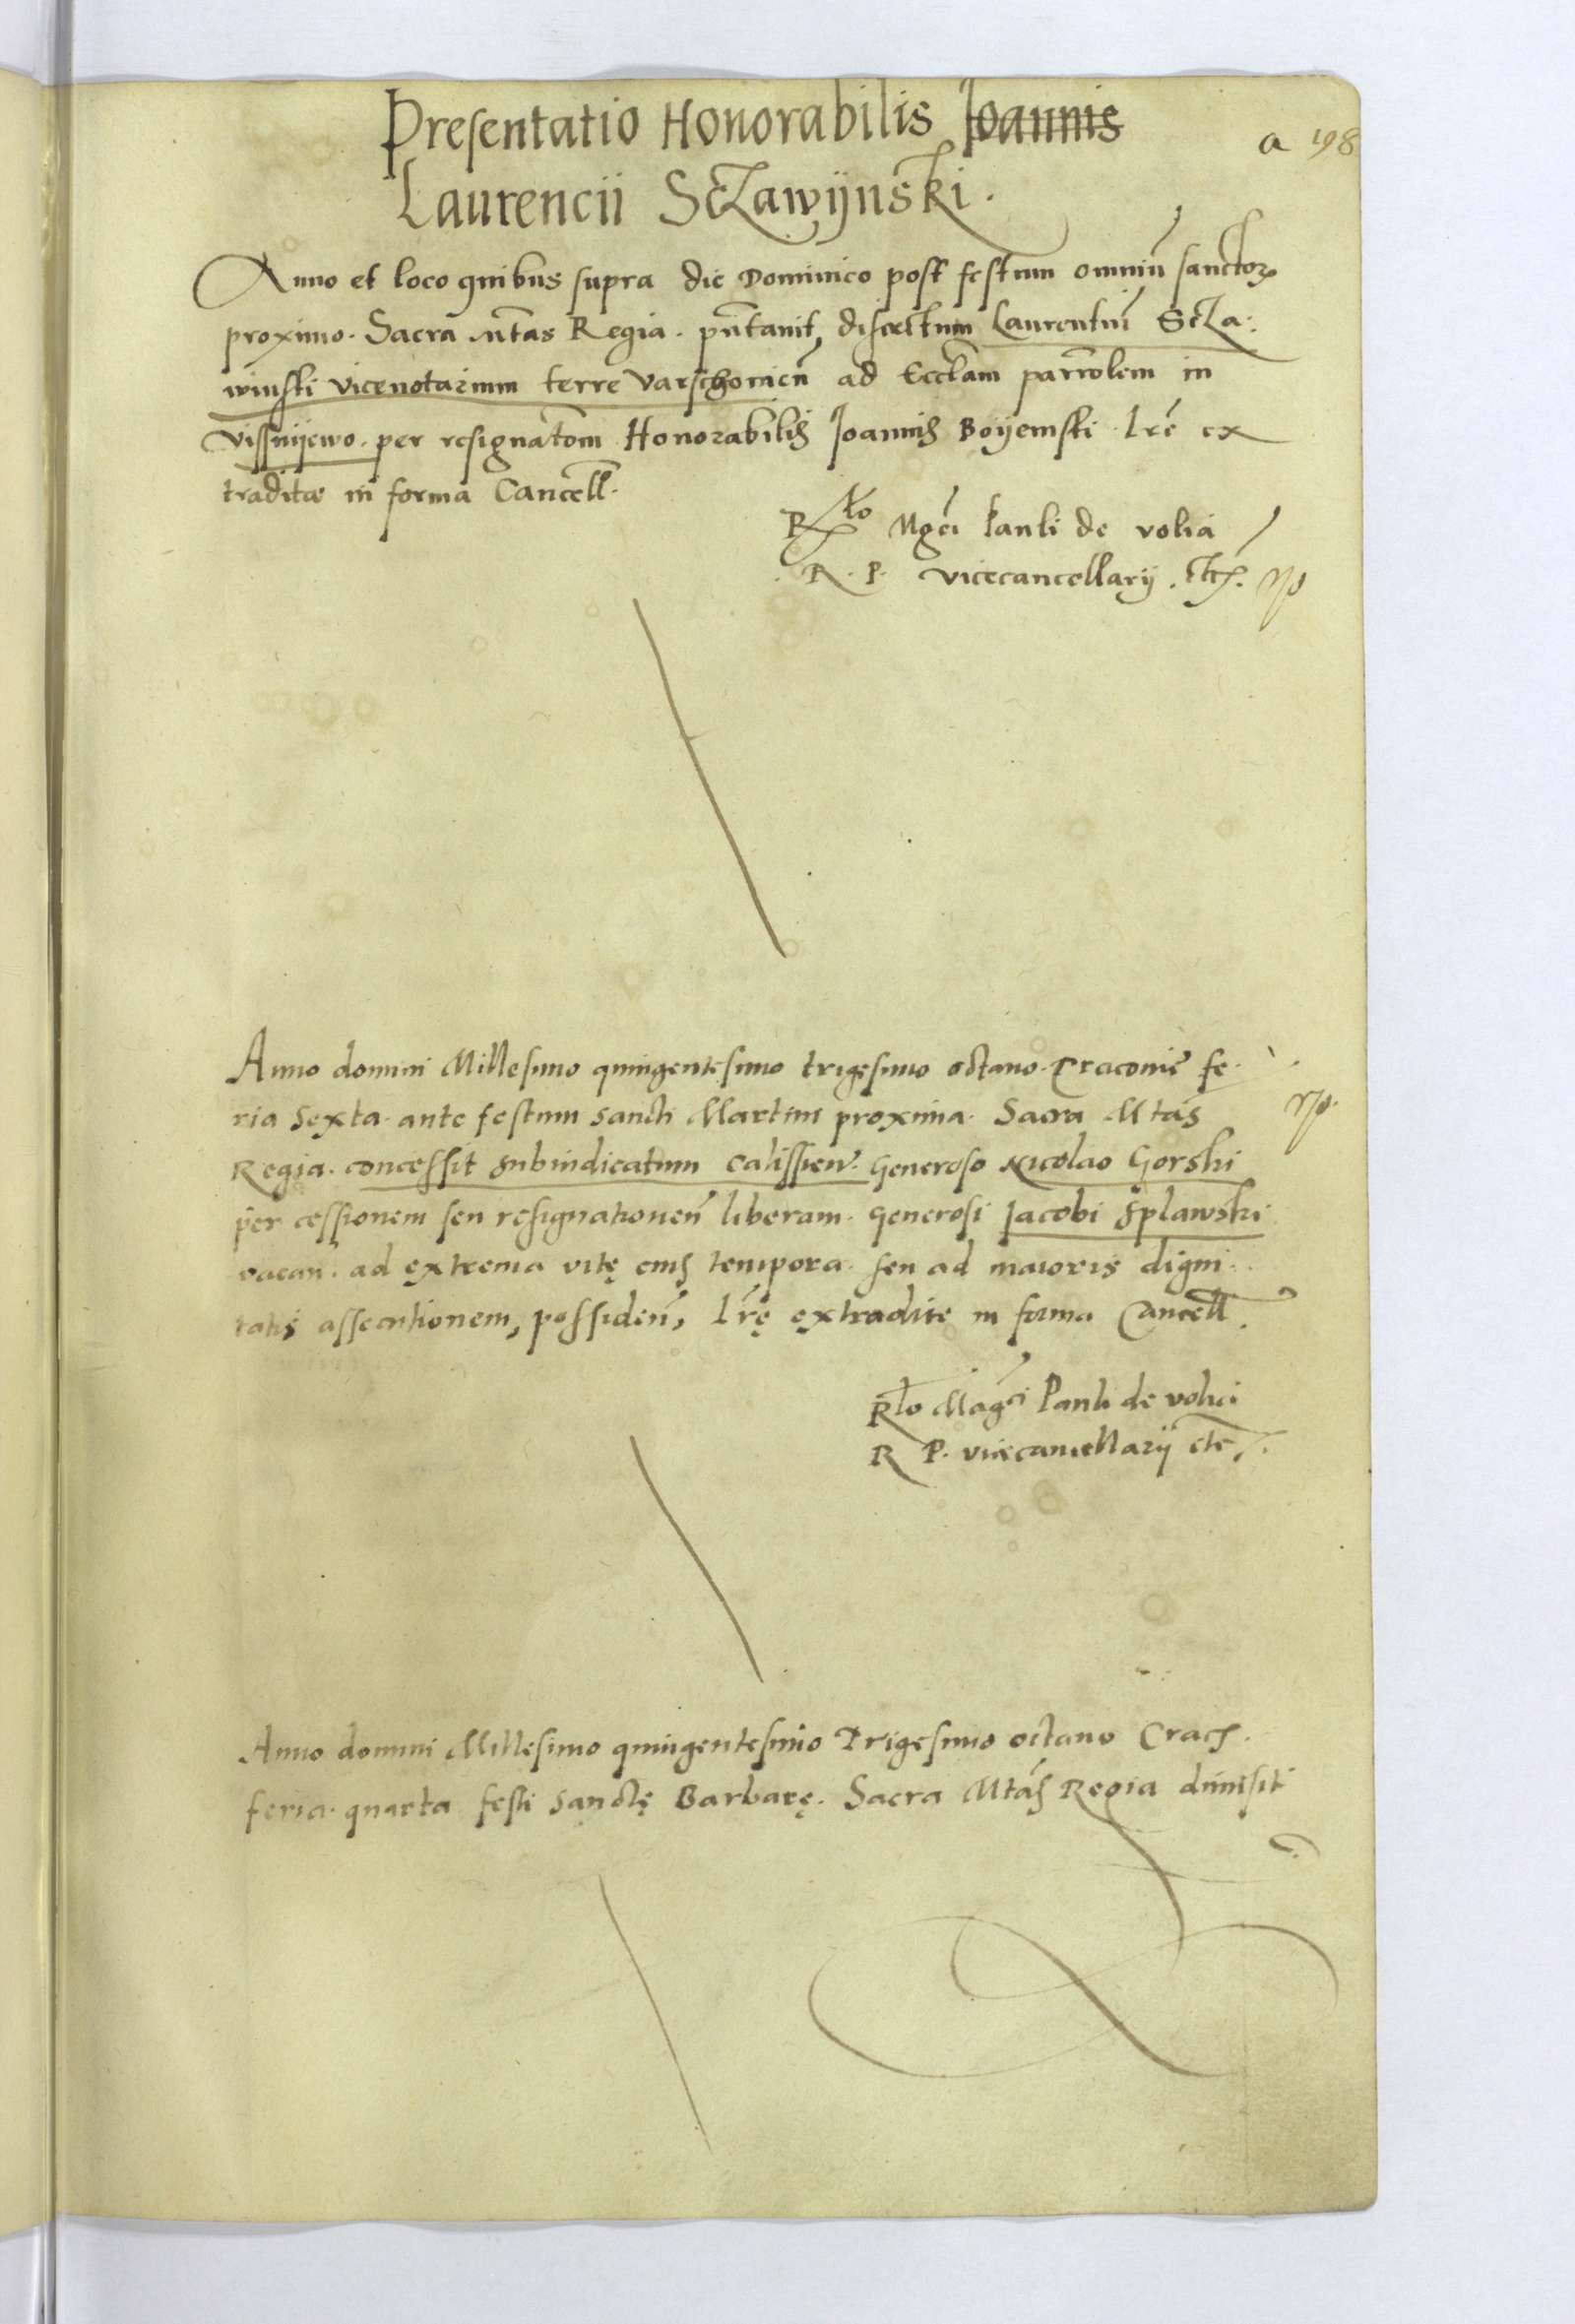 Presentatio Honorabilis Joannis
a 198
Laurencii Sczawijnski.
Anno et loco quibus supra die Dominico post festum omniu sanctor
proximo. Sacra Mtas Regia. pntauit, discretum Laurentiu Scza:
winski vicenotarium terre Varschouien ad Ecclam parrolem in
Vissnijewo. per resignatom Honorabilis Joannis Boijemski. Lre ex
tradite in forma Cancell.
Rlto Mgci Pauli de volia
R. P. vicecancellarij. etc.
Anno domini Millesimo quingentesimo trigesimo octauo. Cracouie fe.
ria Sexta. ante festum sancti Martini proxima. Sacra Mtas
Regia. concessit subiudicatum calissien. Generoso Nicolao Gorski
per cessionem seu resignationen liberam. generosi Jacobi Splawski
vacan. ad extrema vitę eius tempora. seu ad maioris digni.
tatis assecutionem, possiden, Lrę extradite in forma Cancell.
Rlto Magci Pauli de volia
R P. vicecancellarij etc.
Anno domini Millesimo quingentesimo Trigesimo octauo Crac.
feria. quarta festi Sanctę Barbarę. Sacra Mtas Regia dimisit